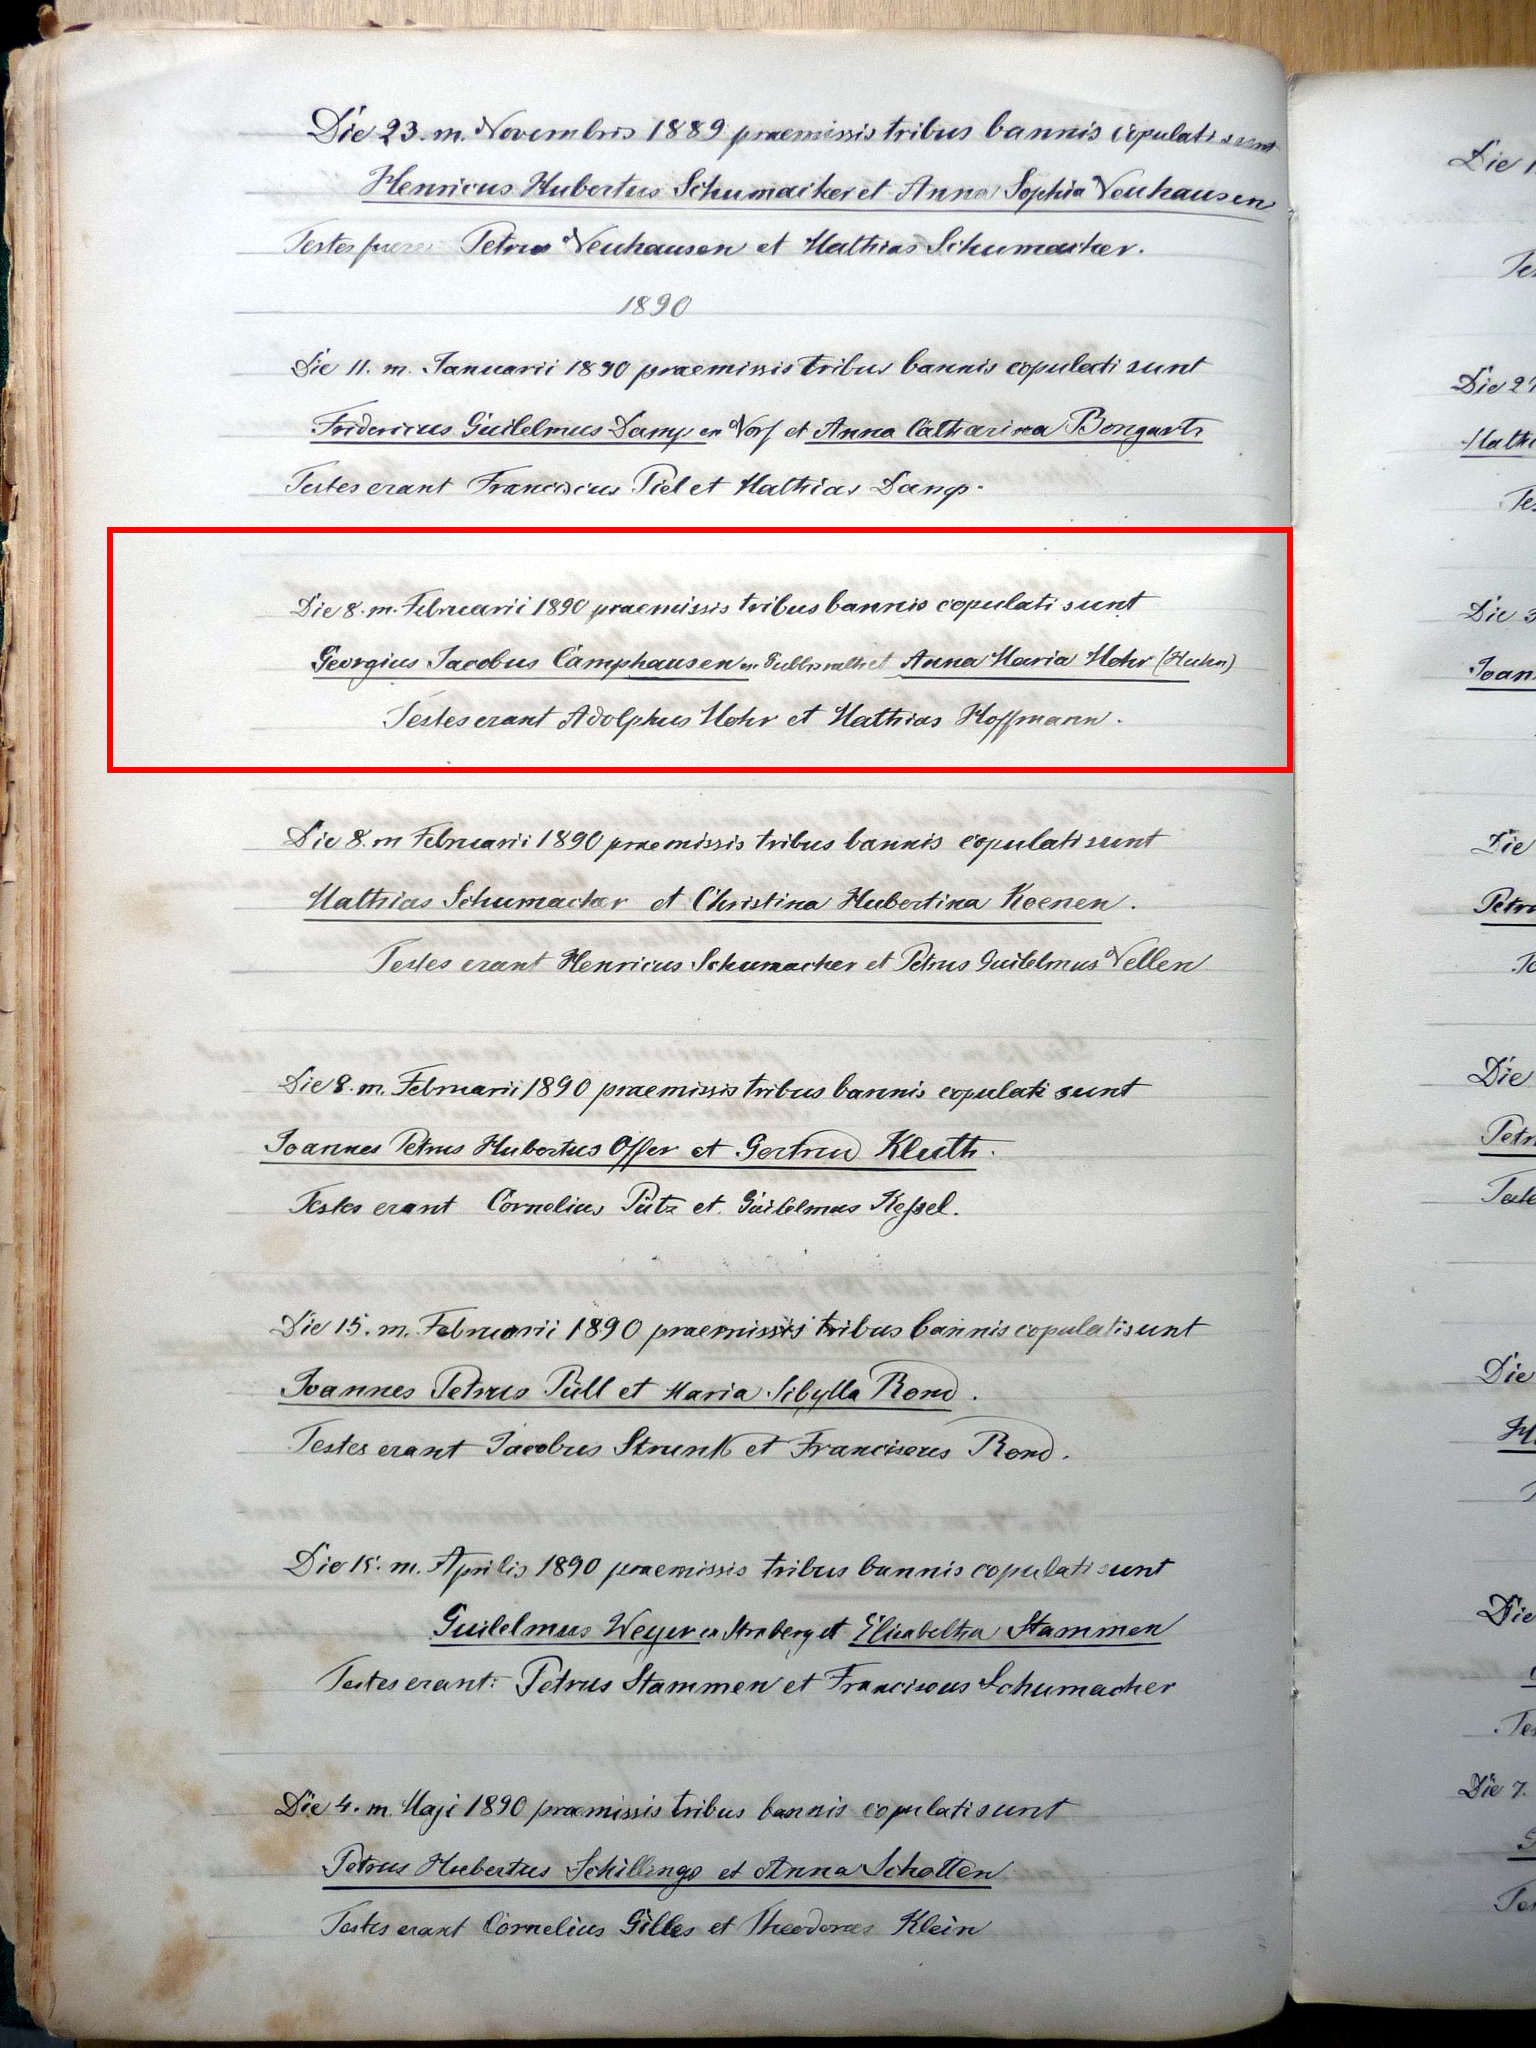 Die 23. m. Novembris 1889 praemissis tribus bannis copulati sunt
Henricus Hubertus Schumacher et Anna Sophia Neuhausen
Testes fuere Petrus Neuhausen et Mathias Schumacher.
1890
Die 11. m. Januarii 1890 praemissis tribus bannis copulati sunt
Fridericus Guilelmus Damp ex Norf et Anna Catharina Bongartz
Testes erant Franciscus Piel et Mathias Damp.
Die 8. m. Februarii 1890 praemissis tribus bannis copulati sunt
Georgius Jacobus Camphausen ex et Anna Maria Mohr (Huhn)
Testes erant Adolphus Mohr et Mathias Hoffmann.
Die 8. m Februarii 1890 praemissis tribus bannis copulati sunt
Mathias Schumacher et Christina Hubertina Koenen.
Testes erant Henricus Schumacher et Petrus Guilelmus Nellen
Die 8. m. Februarii 1890 praemissis tribus bannis copulati sunt
Joannes Petrus Hubertus Offer et Gertrud Kluth.
Testes erant Cornelius Pütz et Guilelmus Kessel.
Die 15. m. Februarii 1890 praemissis tribus bannis copulati sunt
Joannes Petrus Püll et Maria Sibylla Rond.
Testes erant Jacobus Strunk et Franciscus Rond.
Die 15. m. Aprilis 1890 praemissis tribus bannis copulati sunt
Guilelmus Weyer ex et Elisabetha Stammen
Testes erant: Petrus Stammen et Franciscus Schumacher
Die 4. m. Maji 1890 praemissis tribus bannis copulati sunt
Petrus Hubertus Schillings et Anna Schotten
Testes erant Cornelius Gilles et Theodorus Klein
Die 1
Die
Die 3
Die
Petru
Die
Petr
Teste
Die
Die
Die 7.